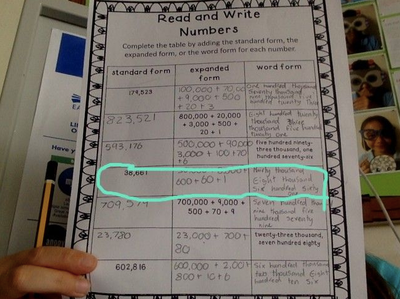 Read and Write
Numbers
Complete the table by adding the standard form, the
expanded form, or the word form for each number.
standard form
expanded form
word form
179,523
100,000 + 70,00
+ 9,000 + 500
+ 20 + 3
one hundred
seventy thousand
nine thousand five
hundred twenty
823,521
800,000 + 20,000
+ 3,000 + 500
+ 20 + 1
Eight hundred twenty
thousand three
thousand five hundred
twenty one
593,176
500,000 + 90,000
3,000 + 100 + 70
+ 6
five hundred ninety-
three thousand, one
hundred seventy-six
38,661
600 + 60 + 1
thirty thousand
Eight thousand
six hundred sixty
709,579
700,000 + 9,000 +
500 + 70 + 9
seven hundred
nine thousand five
hundred seventy
nine
23,780
23,000 + 700 +
80
twenty-three thousand,
seven hundred eighty
602,816
600,000 + 2,00
800 + 10 + 6
Six hundred thousand
two thousand Eight
hundred ten six